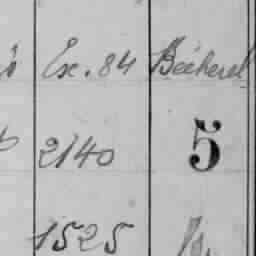 Ex. 84 Bécherel
2140 5
1525